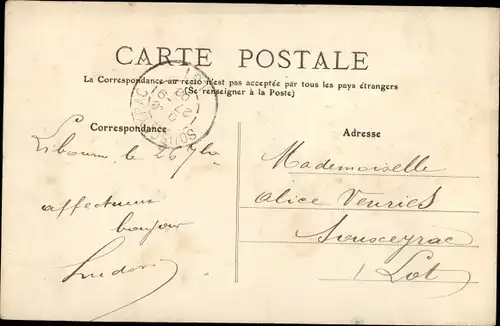 CARTE POSTALE
La Correspondance au recto n'est pas acceptée par tous les pays étrangers
(Se renseigner à la Poste)
Correspondance
Adresse
Libourne le 26
affectueux
bonjour
Mademoiselle
Alice Venries
Sousceyrac
Lot